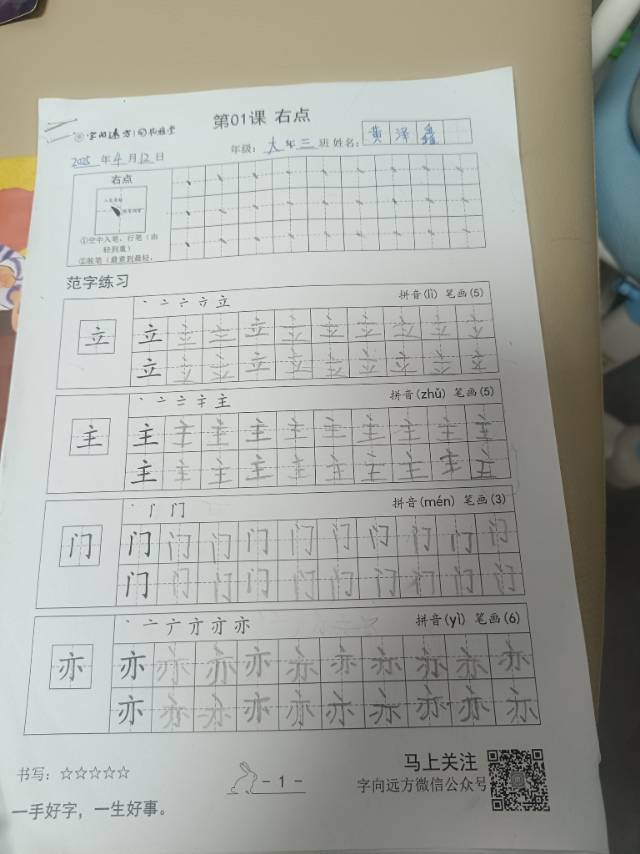 第01课 右点
年级：大年三班 姓名：黄泽鑫
2025年4月12日
右点
①空中入笔，行笔（由
轻到重）
②收笔（最重到最轻，
范字练习
丶 亠 亠 立 立
拼音(lì) 笔画(5)
立 立 立 立 立 立 立 立 立 立 立
立 立 立 立 立 立 立 立 立 立
丶 亠 二 主 主
拼音(zhǔ) 笔画(5)
主 主 主 主 主 主 主 主 主 主 主
主 主 主 主 主 主 主 主 主 主
丶 门 门
拼音(mén) 笔画(3)
门 门 门 门 门 门 门 门 门 门 门
门 门 门 门 门 门 门 门 门 门
丶 亠 亣 亦 亦 亦
拼音(yì) 笔画(6)
亦 亦 亦 亦 亦 亦 亦 亦 亦 亦 亦
亦 亦 亦 亦 亦 亦 亦 亦 亦 亦
书写：☆☆☆☆☆
- 1 -
马上关注
字向远方微信公众号
一手好字，一生好事。